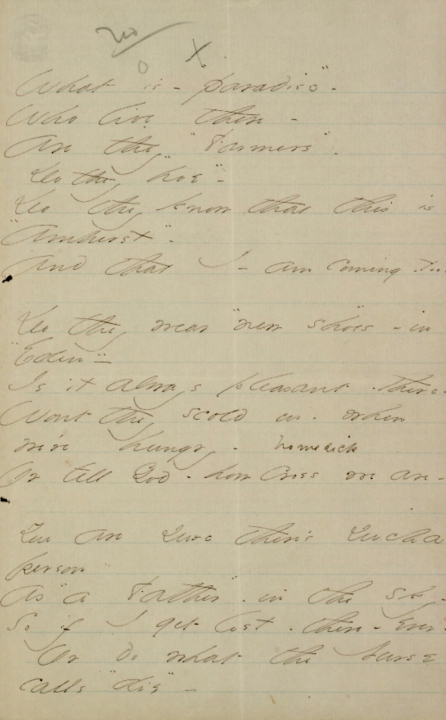 X.
What is - "Paradise" -
Who live there -
Are they "Farmers" -
Do they "hoe" -
Do they know that this is
"Amherst" -
And that I - am coming - too
Do they wear "new shoes" - in
"Eden" -
Is it always pleasant - there -
Wont they scold us - when
we're hungry - homesick
Or tell God - how cross we are -
You are sure there's such a
person
As "a Father" - in the sky -
So if I get lost - there - ever -
Or do what the Nurse
calls "die" -